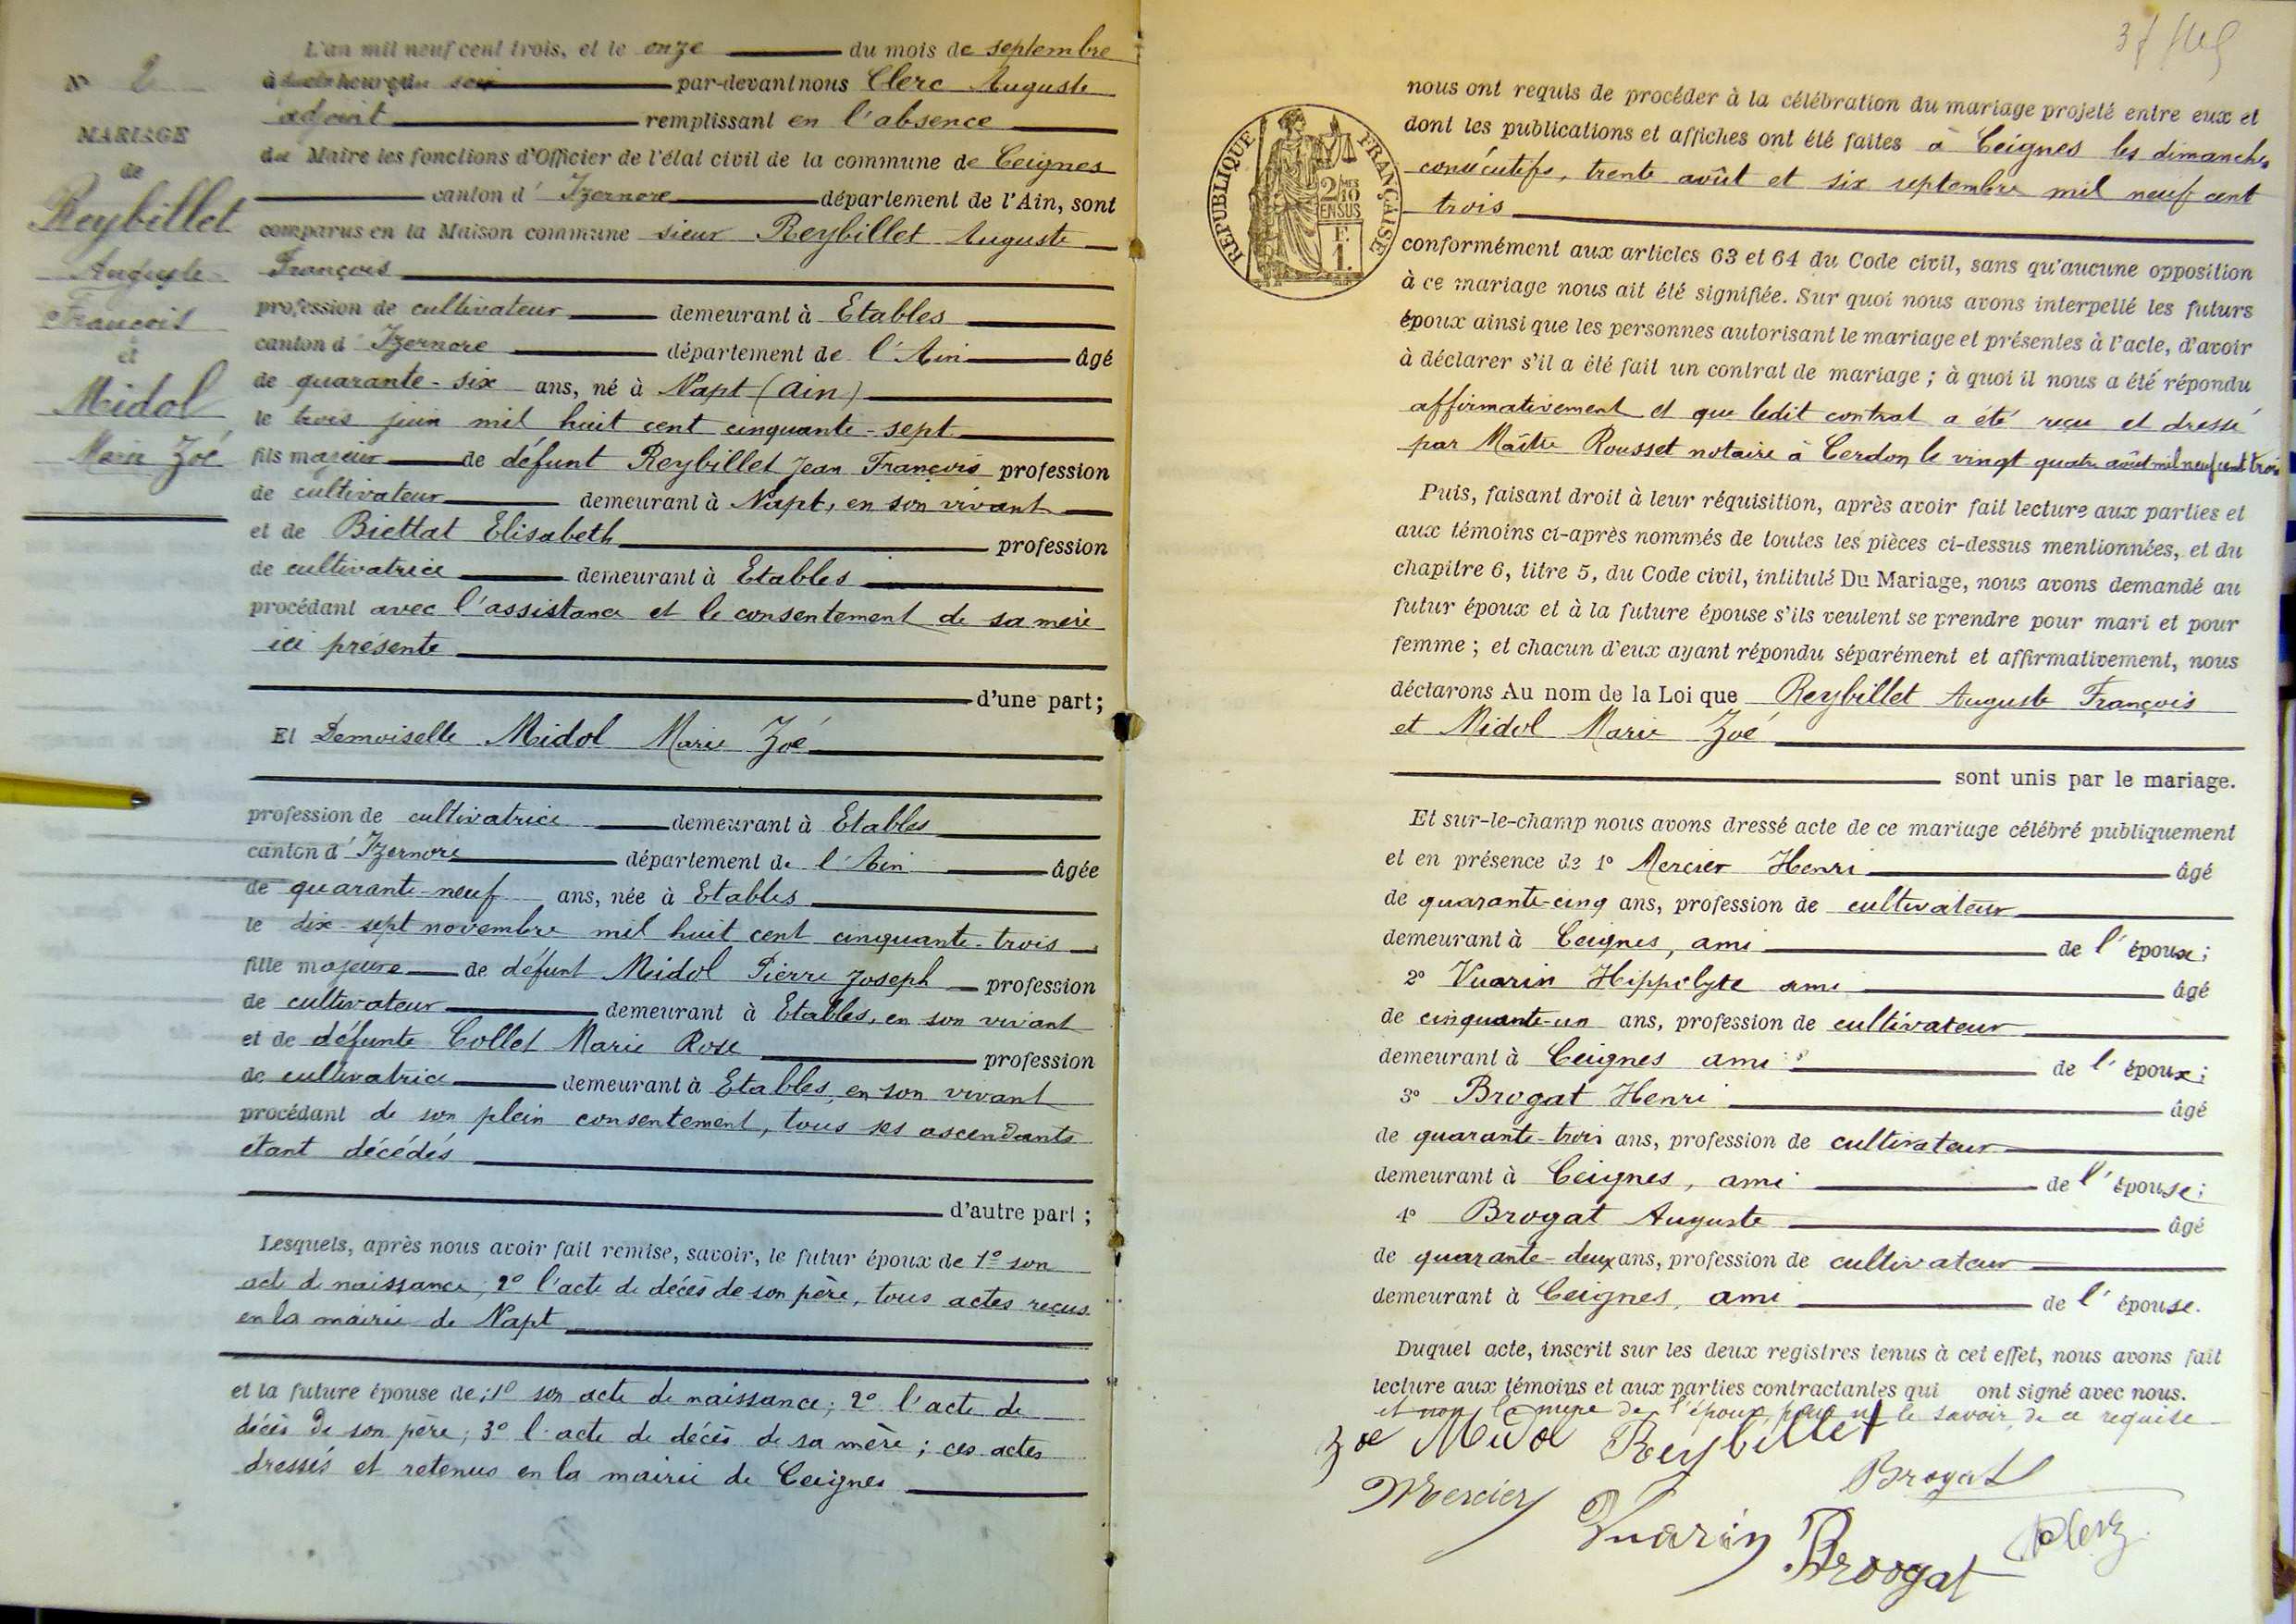 L'an mil neuf cent trois, et le onze du mois de septembre
à heures du soir par-devant nous Clerc Auguste
adjoint remplissant en l'absence
du Maire les fonctions d'Officier de l'état civil de la commune de Ceignes
canton d' Izernore département de l'Ain, sont
comparus en la Maison commune sieur Reybillet Auguste
François
profession de cultivateur demeurant à Etables
canton d' Izernore département de l'Ain âgé
de quarante-six ans, né à Napt (Ain)
le trois juin mil huit cent cinquante-sept
fils majeur de défunt Reybillet Jean François profession
de cultivateur demeurant à Napt, en son vivant
et de Biettat Elisabeth profession
de cultivatrice demeurant à Etables
procédant avec l'assistance et le consentement de sa mère
ici présente
d'une part;
Et Demoiselle Midol Marie Zoé
profession de cultivatrice demeurant à Etables
canton d' Izernore département de l'Ain âgée
de quarante-neuf ans, née à Etables
le dix-sept novembre mil huit cent cinquante-trois
fille majeure de défunt Midol Pierre Joseph profession
de cultivateur demeurant à Etables, en son vivant
et de défunte Collet Marie Rose profession
de cultivatrice demeurant à Etables, en son vivant
procédant de son plein consentement, tous ses ascendants
étant décédés
d'autre part;
Lesquels, après nous avoir fait remise, savoir, le futur époux de 1º son
acte de naissance; 2º l'acte de décès de son père, tous actes reçus
en la mairie de Napt
et la future épouse de: 1º son acte de naissance; 2º l'acte de
décès de son père; 3º l'acte de décès de sa mère; ces actes
dressés et retenus en la mairie de Ceignes
Nº 2
MARIAGE
de
Reybillet
Auguste
François
et
Midol
Marie Zoé
RÉPUBLIQUE FRANÇAISE
2/10 MES
EN SUS
F.
1.
nous ont requis de procéder à la célébration du mariage projeté entre eux et
dont les publications et affiches ont été faites à Ceignes les dimanches
consécutifs, trente août et six septembre mil neuf cent
trois
conformément aux articles 63 et 64 du Code civil, sans qu'aucune opposition
à ce mariage nous ait été signifiée. Sur quoi nous avons interpellé les futurs
époux ainsi que les personnes autorisant le mariage et présentes à l'acte, d'avoir
à déclarer s'il a été fait un contrat de mariage; à quoi il nous a été répondu
affirmativement et que ledit contrat a été reçu et dressé
par Maître Rousset notaire à Cerdon le vingt-quatre août mil neuf cent trois
Puis, faisant droit à leur réquisition, après avoir fait lecture aux parties et
aux témoins ci-après nommés de toutes les pièces ci-dessus mentionnées, et du
chapitre 6, titre 5, du Code civil, intitulé Du Mariage, nous avons demandé au
futur époux et à la future épouse s'ils veulent se prendre pour mari et pour
femme; et chacun d'eux ayant répondu séparément et affirmativement, nous
déclarons Au nom de la Loi que Reybillet Auguste François
et Midol Marie Zoé
sont unis par le mariage.
Et sur-le-champ nous avons dressé acte de ce mariage célébré publiquement
et en présence de 1º Mercier Henri âgé
de quarante-cinq ans, profession de cultivateur
demeurant à Ceignes, ami de l'époux;
2º Vuarin Hippolyte ami âgé
de cinquante-un ans, profession de cultivateur
demeurant à Ceignes ami de l'époux;
3º Brogat Henri âgé
de quarante-trois ans, profession de cultivateur
demeurant à Ceignes, ami de l'épouse;
4º Brogat Auguste âgé
de quarante-deux ans, profession de cultivateur
demeurant à Ceignes, ami de l'épouse.
Duquel acte, inscrit sur les deux registres tenus à cet effet, nous avons fait
lecture aux témoins et aux parties contractantes qui ont signé avec nous.
et non la mère de l'époux, pour ne le savoir, de ce requise
Zoé Midol Reybillet
Mercier Brogat
Vuarin Brogat Clerc